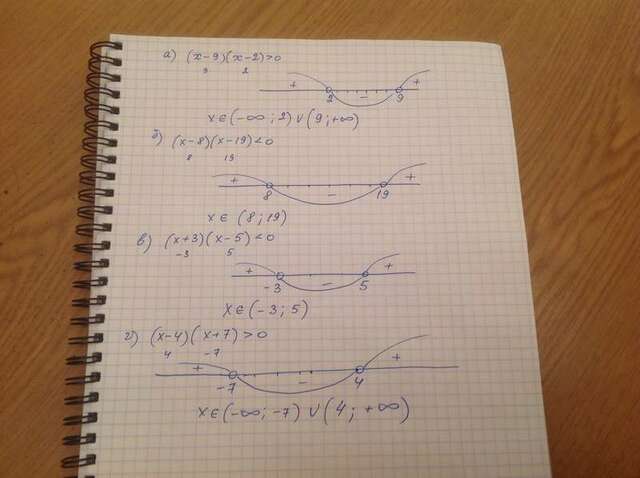 а) (x-9)(x-2)>0
9 2
+ - +
2 9
x∈(-∞; 2)∪(9; +∞)
б) (x-8)(x-19)<0
8 19
+ - +
8 19
x∈ (8; 19)
в) (x+3)(x-5)<0
-3 5
+ - +
-3 5
x∈(-3; 5)
г) (x-4)(x+7)>0
4 -7
+ - +
-7 4
x∈(-∞; -7)∪(4; +∞)